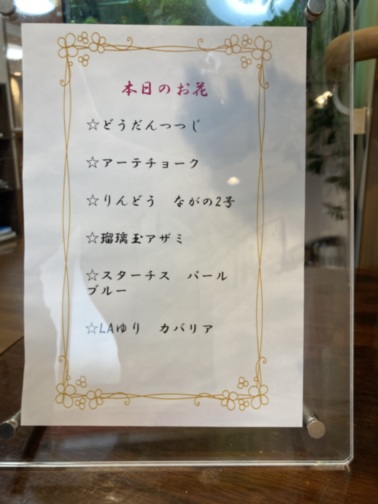 本日のお花
☆どうだんつつじ
☆アーテチョーク
☆りんどう　ながの2号
☆瑠璃玉アザミ
☆スターチス　パール
ブルー
☆LAゆり　カバリア